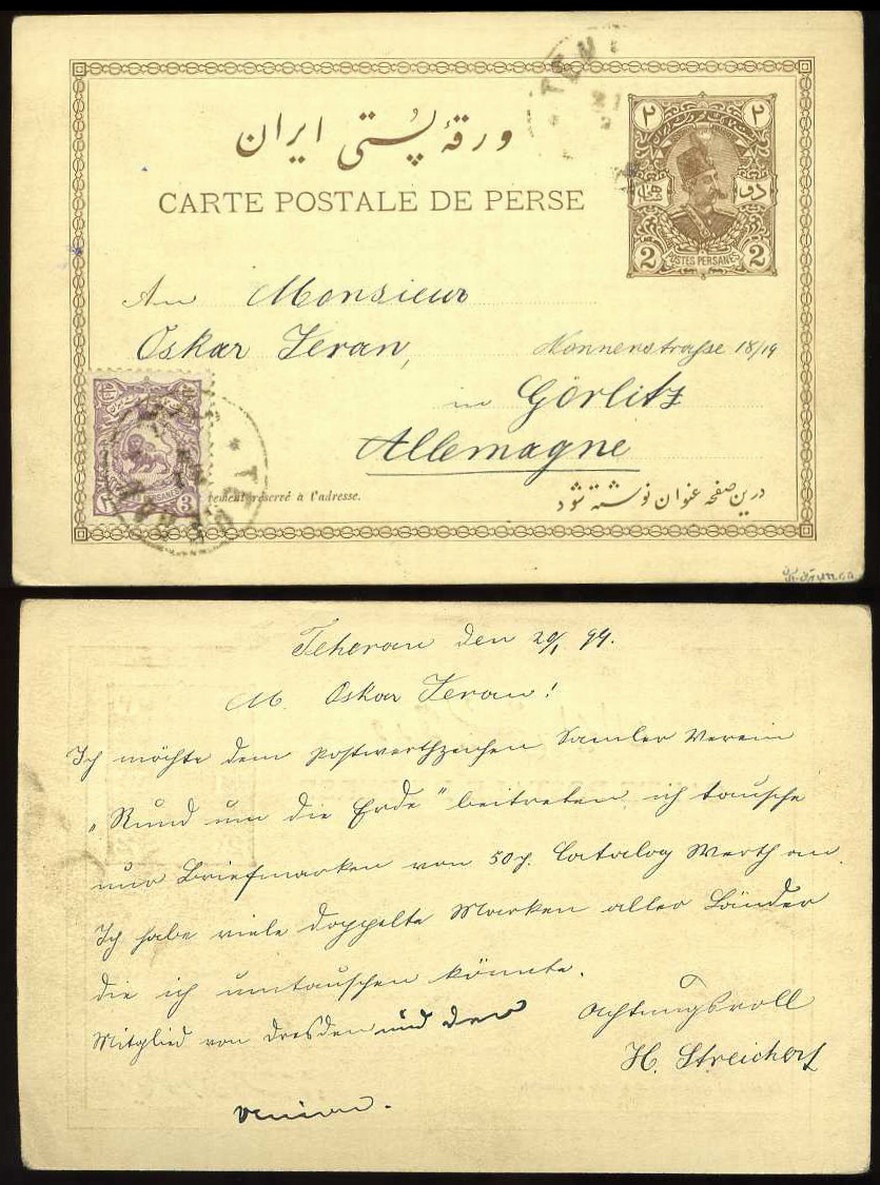 ورقهٔ پستی ایران
CARTE POSTALE DE PERSE
۲ ۲
دو
2 POSTES PERSANES 2
An Monsieur
Oskar Jeran,
Nonnenstrasse 18/19
in Görlitz
Allemagne
3
ement réservé à l'adresse.
درین صفحه عنوان نوشته شود
Teheran den 20/1 99.
M. Oskar Jeran!
Ich möchte dem Postwerthzeichen Samler Verein
„Rund um die Erde" beitreten, ich tausche
nur Briefmarken von 50 p. Catalog Werth an.
Ich habe viele doppelte Marken aller Länder
die ich umtauschen könnte.
Mitglied von Dresden und der
Achtungsvoll
H. Streichert